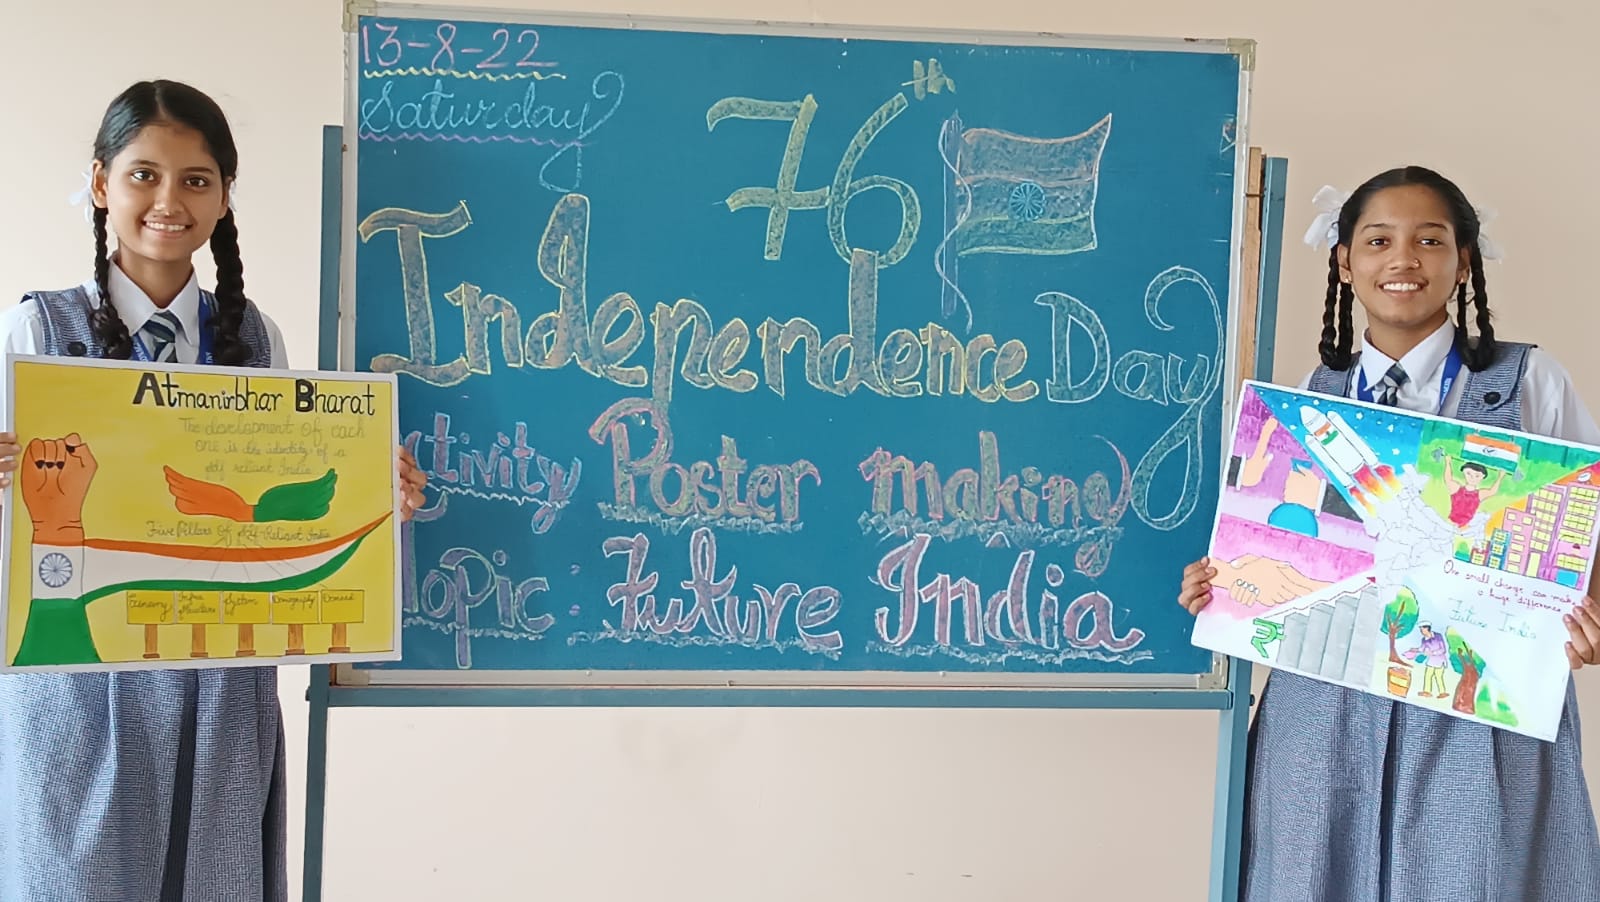 13-8-22
Saturday
76th
Independence Day
ctivity Poster making
Topic : Future India
Atmanirbhar Bharat
The development of each
one is the identity of a
self reliant India
Five Pillars of Self-Reliant India
Economy Infra System Demography Demand
One small change can make
a huge difference
Future India